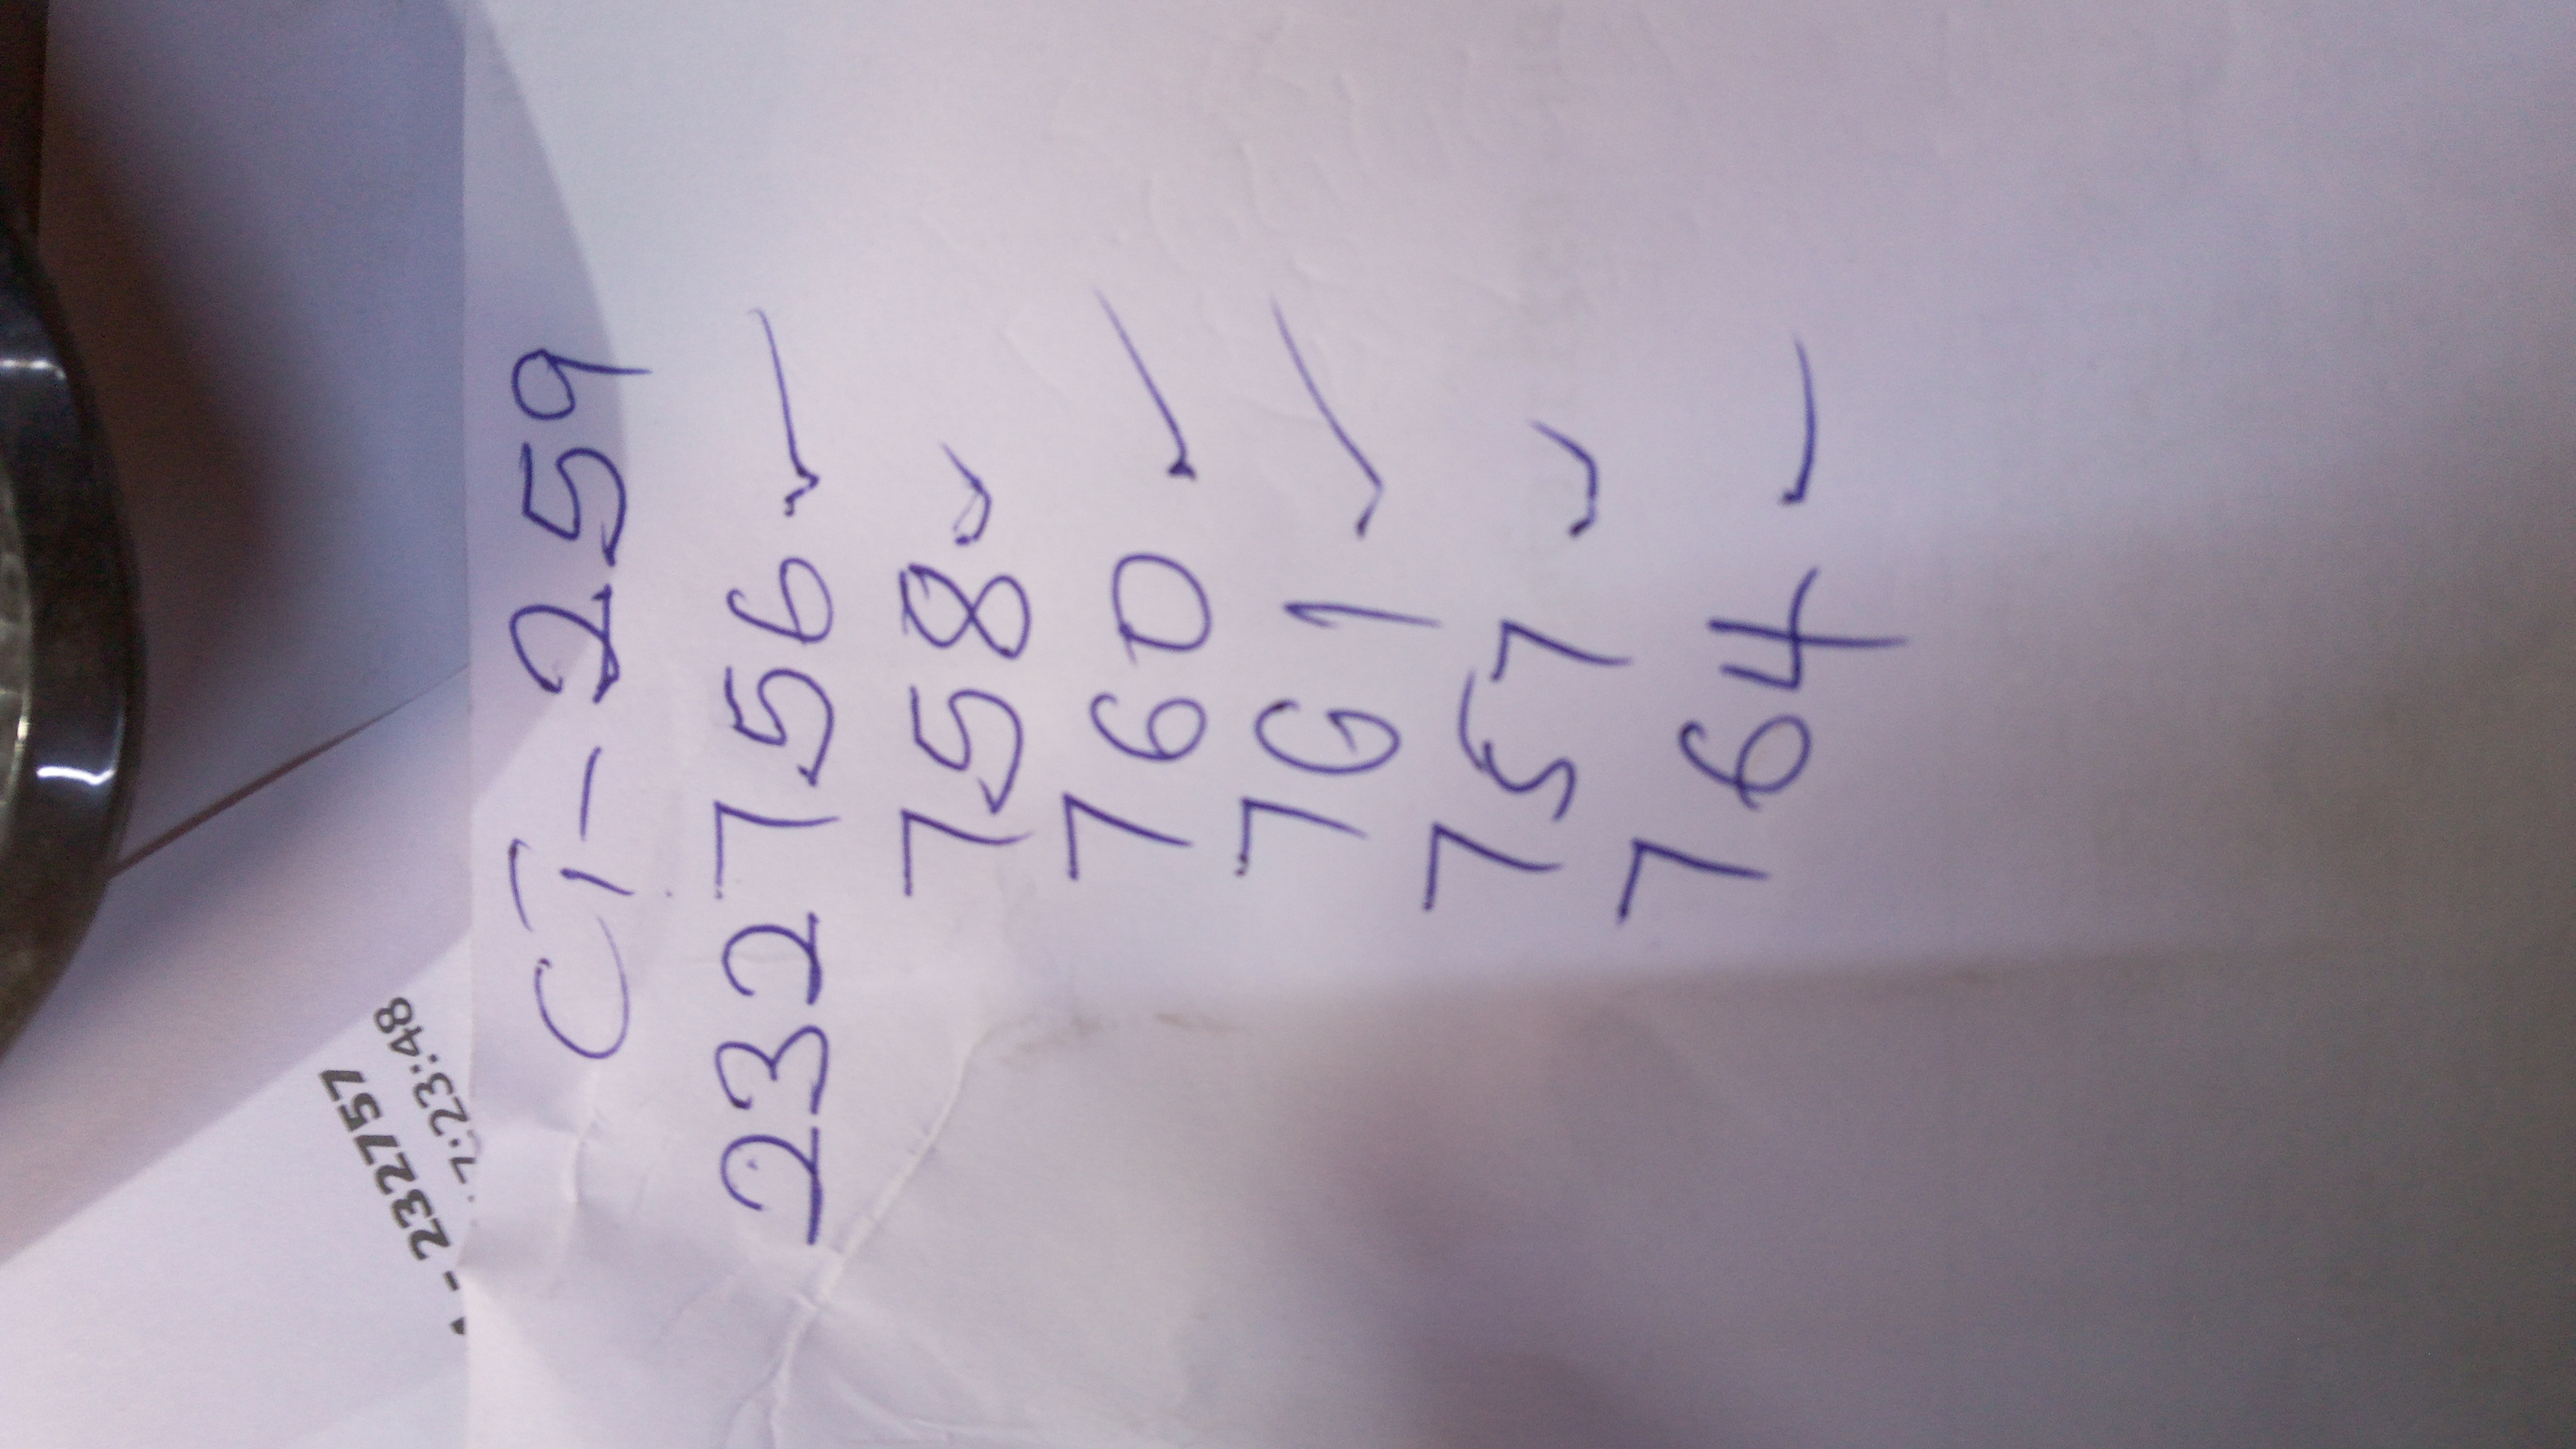 - 232757
7:23:48
CT- 259
232756 ✓
758 ✓
760 ✓
761 ✓
757 ✓
764 ✓